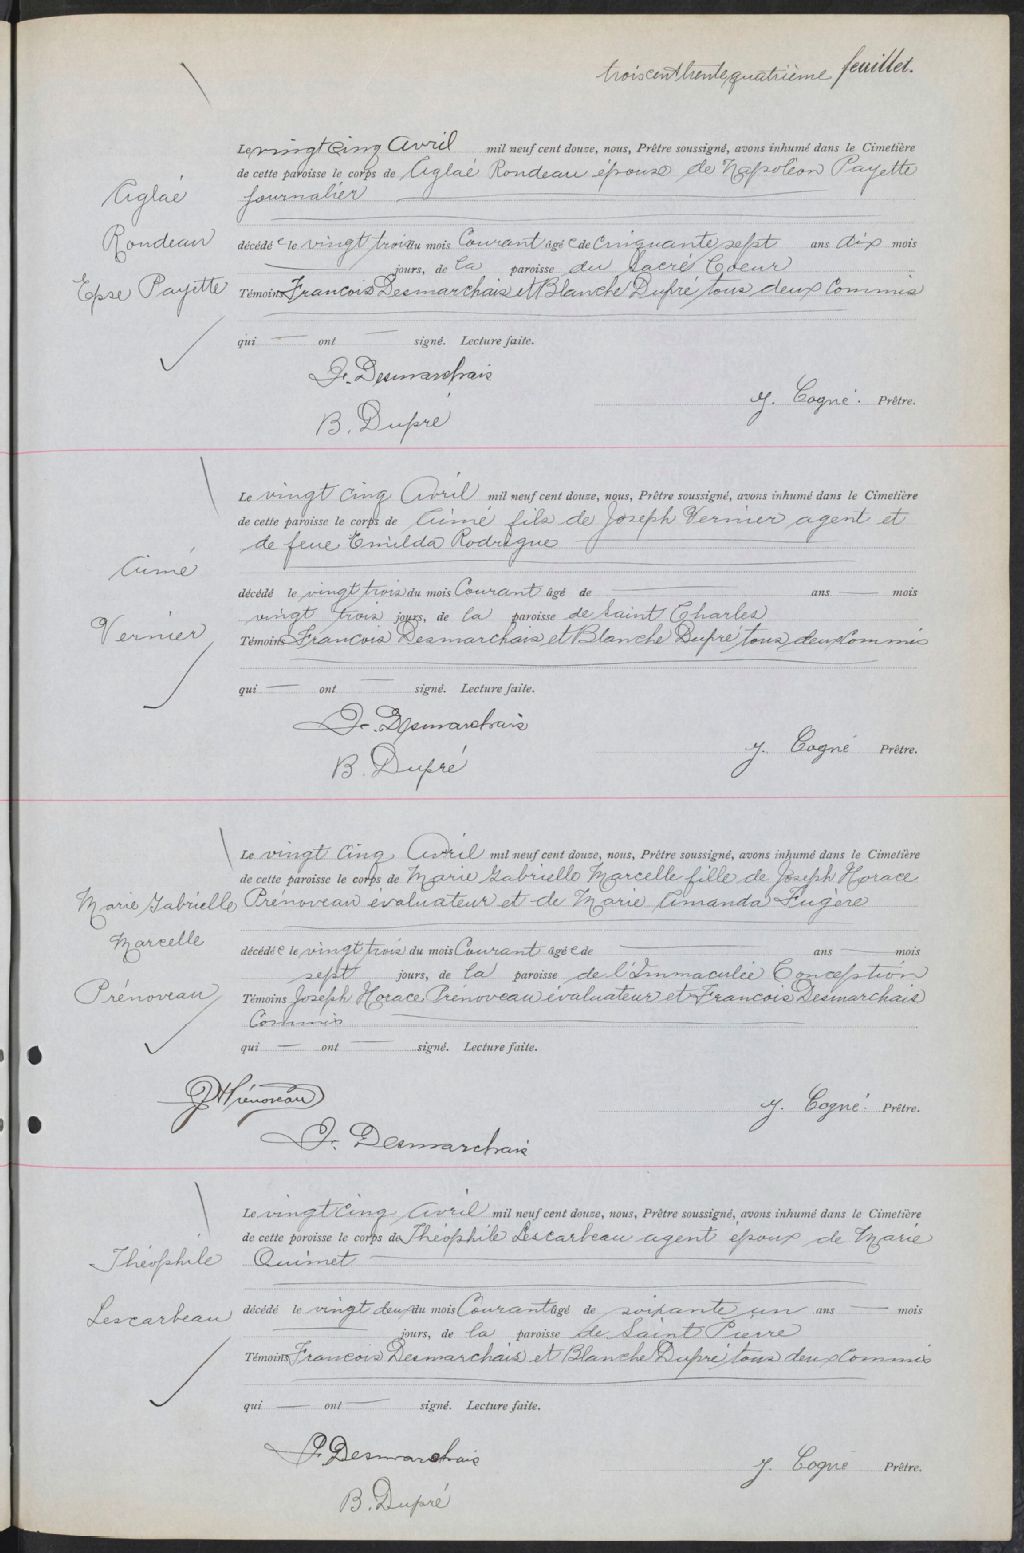 trois cent trente quatrième feuillet.
Le vingt cinq Avril mil neuf cent douze, nous, Prêtre soussigné, avons inhumé dans le Cimetière
de cette paroisse le corps de Aglaé Rondeau épouse de Napoléon Payette
journalier
Aglaé
Rondeau
Epse Payette
décédée le vingt trois du mois Courant âgée de cinquante sept ans dix mois
jours, de la paroisse du Sacré Coeur
Témoins Francois Desmarchais et Blanche Dupré tous deux Commis
qui — ont — signé. Lecture faite.
F. Desmarchais
J. Cogné. Prêtre.
B. Dupré
Le vingt cinq Avril mil neuf cent douze, nous, Prêtre soussigné, avons inhumé dans le Cimetière
de cette paroisse le corps de Aimé fils de Joseph Vernier agent et
de feue Emilda Rodrigue
Aimé
Vernier
décédé le vingt trois du mois Courant âgé de — ans — mois
vingt trois jours, de la paroisse de Saint Charles
Témoins Francois Desmarchais et Blanche Dupré tous deux Commis
qui — ont — signé. Lecture faite.
F. Desmarchais
J. Cogné Prêtre.
B. Dupré
Le vingt cinq Avril mil neuf cent douze, nous, Prêtre soussigné, avons inhumé dans le Cimetière
de cette paroisse le corps de Marie Gabrielle Marcelle fille de Joseph Horace
Prénoveau évaluateur et de Marie Amanda Fugère
Marie Gabrielle
Marcelle
Prénoveau
décédée le vingt trois du mois Courant âgée de — ans — mois
sept jours, de la paroisse de l'Immaculée Conception
Témoins Joseph Horace Prénoveau évaluateur et Francois Desmarchais
Commis
qui — ont — signé. Lecture faite.
JH Prénoveau
J. Cogné. Prêtre.
F. Desmarchais
Le vingt cinq Avril mil neuf cent douze, nous, Prêtre soussigné, avons inhumé dans le Cimetière
de cette paroisse le corps de Théophile Lescarbeau agent époux de Marie
Ouimet
Théophile
Lescarbeau
décédé le vingt deux du mois Courant âgé de soixante un ans — mois
jours, de la paroisse de Saint Pierre
Témoins Francois Desmarchais et Blanche Dupré tous deux Commis
qui — ont — signé. Lecture faite.
F. Desmarchais
J. Cogné Prêtre.
B. Dupré